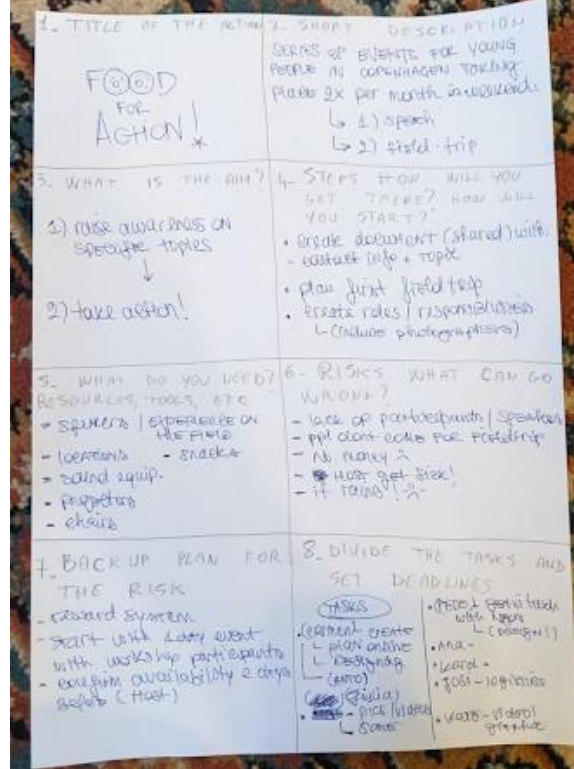 1. TITLE OF THE ACTION
FOOD
FOR
ACTION!
2. SHORT DESCRIPTION
SERIES OF EVENTS FOR YOUNG
PEOPLE IN COPENHAGEN TAKING
PLACE 2x per month in weekend:
↳ 1) speech
↳ 2) field-trip
3. WHAT IS THE AIM?
1) raise awareness on
specific topics
↓
2) take action!
4- STEPS HOW WILL YOU
GET THERE? HOW WILL
YOU START?
• create document (shared) with:
- contact info + topic
• plan first field trip
• create roles / responsibilities
↳ (include photographers)
5- WHAT DO YOU NEED?
RESOURCES, TOOLS, ETC
- speakers / EXPERIENCE ON
THE FIELD
- locations - snacks
- sound equip.
- projectors
- chairs
6- RISKS WHAT CAN GO
WRONG?
- lack of participants / speakers
- ppl dont come for fieldtrip
- no money
- HOST get sick!
- it rains!
7- BACKUP PLAN FOR
THE RISK
- reward system
- start with 1 day event
with workshop participants
- confirm availability 2 days
before (Host)
8. DIVIDE THE TASKS AND
SET DEADLINES
TASKS
create
plan online
Designing
pics/videos
with
(DESIGN!)
• Ana -
- logistics
- video/